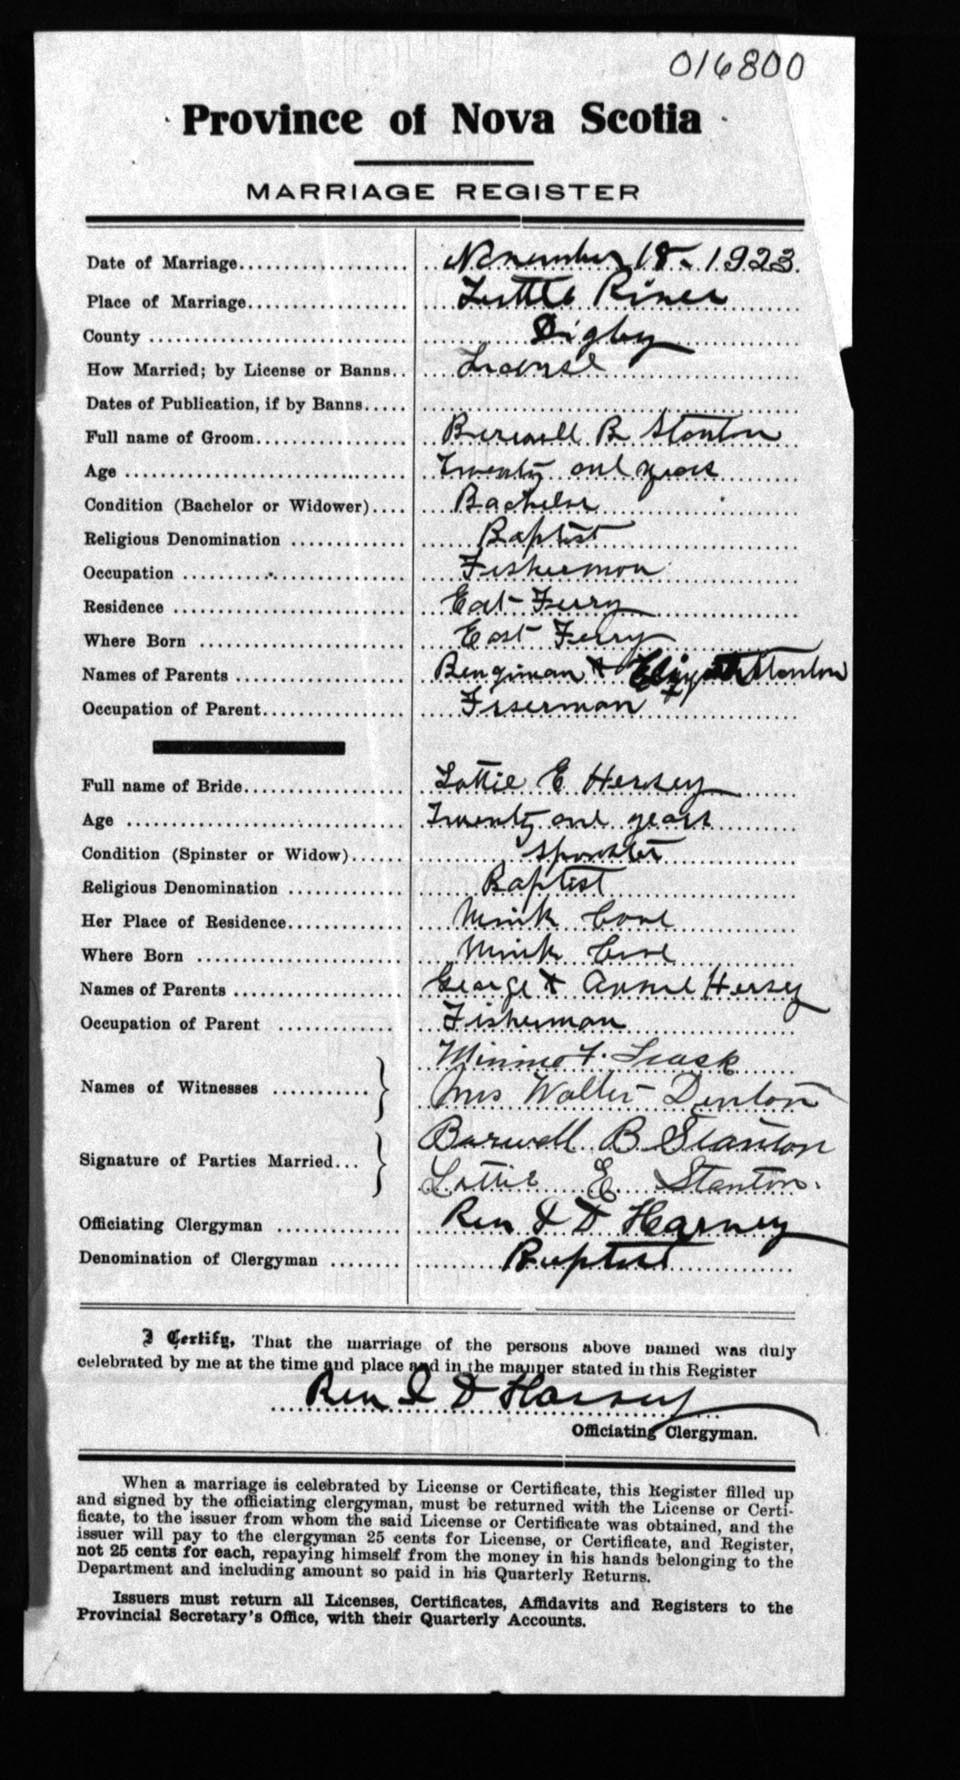 016800
Province of Nova Scotia
MARRIAGE REGISTER
Date of Marriage.................... November 18 - 1923.
Place of Marriage................... Little River
County .............................. Digby
How Married; by License or Banns.. License
Dates of Publication, if by Banns.....
Full name of Groom.................. B. Stanton
Age ................................. Twenty one years
Condition (Bachelor or Widower).... Bachelor
Religious Denomination ............. Baptist
Occupation .......................... Fisherman
Residence ........................... East Ferry
Where Born ......................... East Ferry
Names of Parents .................... Bengiman & Stanton
Occupation of Parent................. Fiserman
Full name of Bride................... Lottie E Hersey
Age ................................. Twenty one years
Condition (Spinster or Widow)......
Religious Denomination ............. Baptist
Her Place of Residence.............. Mink Cove
Where Born ......................... Mink Cove
Names of Parents .................... George & Annie Hersey
Occupation of Parent ............... Fisherman
F.
Names of Witnesses ............ Mrs Walter Denton
Burwell B Stanton
Signature of Parties Married... Lottie E Stanton.
Officiating Clergyman .............. Rev I D Harney
Denomination of Clergyman ........ Baptist
I Certify, That the marriage of the persons above named was duly
celebrated by me at the time and place and in the manner stated in this Register
Rev I D Harney
Officiating Clergyman.
When a marriage is celebrated by License or Certificate, this Register filled up
and signed by the officiating clergyman, must be returned with the License or Certi-
ficate, to the issuer from whom the said License or Certificate was obtained, and the
issuer will pay to the clergyman 25 cents for License, or Certificate, and Register,
not 25 cents for each, repaying himself from the money in his hands belonging to the
Department and including amount so paid in his Quarterly Returns.
Issuers must return all Licenses, Certificates, Affidavits and Registers to the
Provincial Secretary's Office, with their Quarterly Accounts.